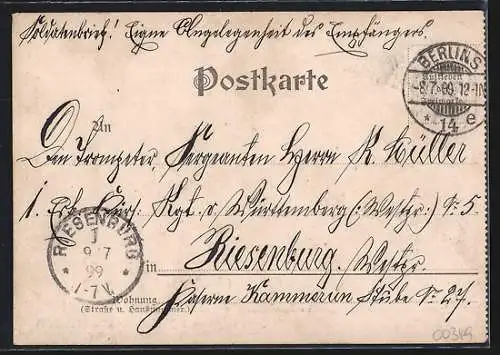 Soldatenbrief! Eigne Angelegenheit des Empfängers.
Postkarte
BERLIN S
-8.7.99. 12-1N.
* 14 e
An
Den Trompeter, Sergeanten Herrn K. Müller
1. Esk. Kürs. Rgt. v. Württemberg (:Westpr:) No 5.
RIESENBURG
9/7
99
7-8V.
in Riesenburg, Westpr.
Wohnung
(Straße u. Hausnummer.)
Kasern Kammerun Stube No 27.
00349